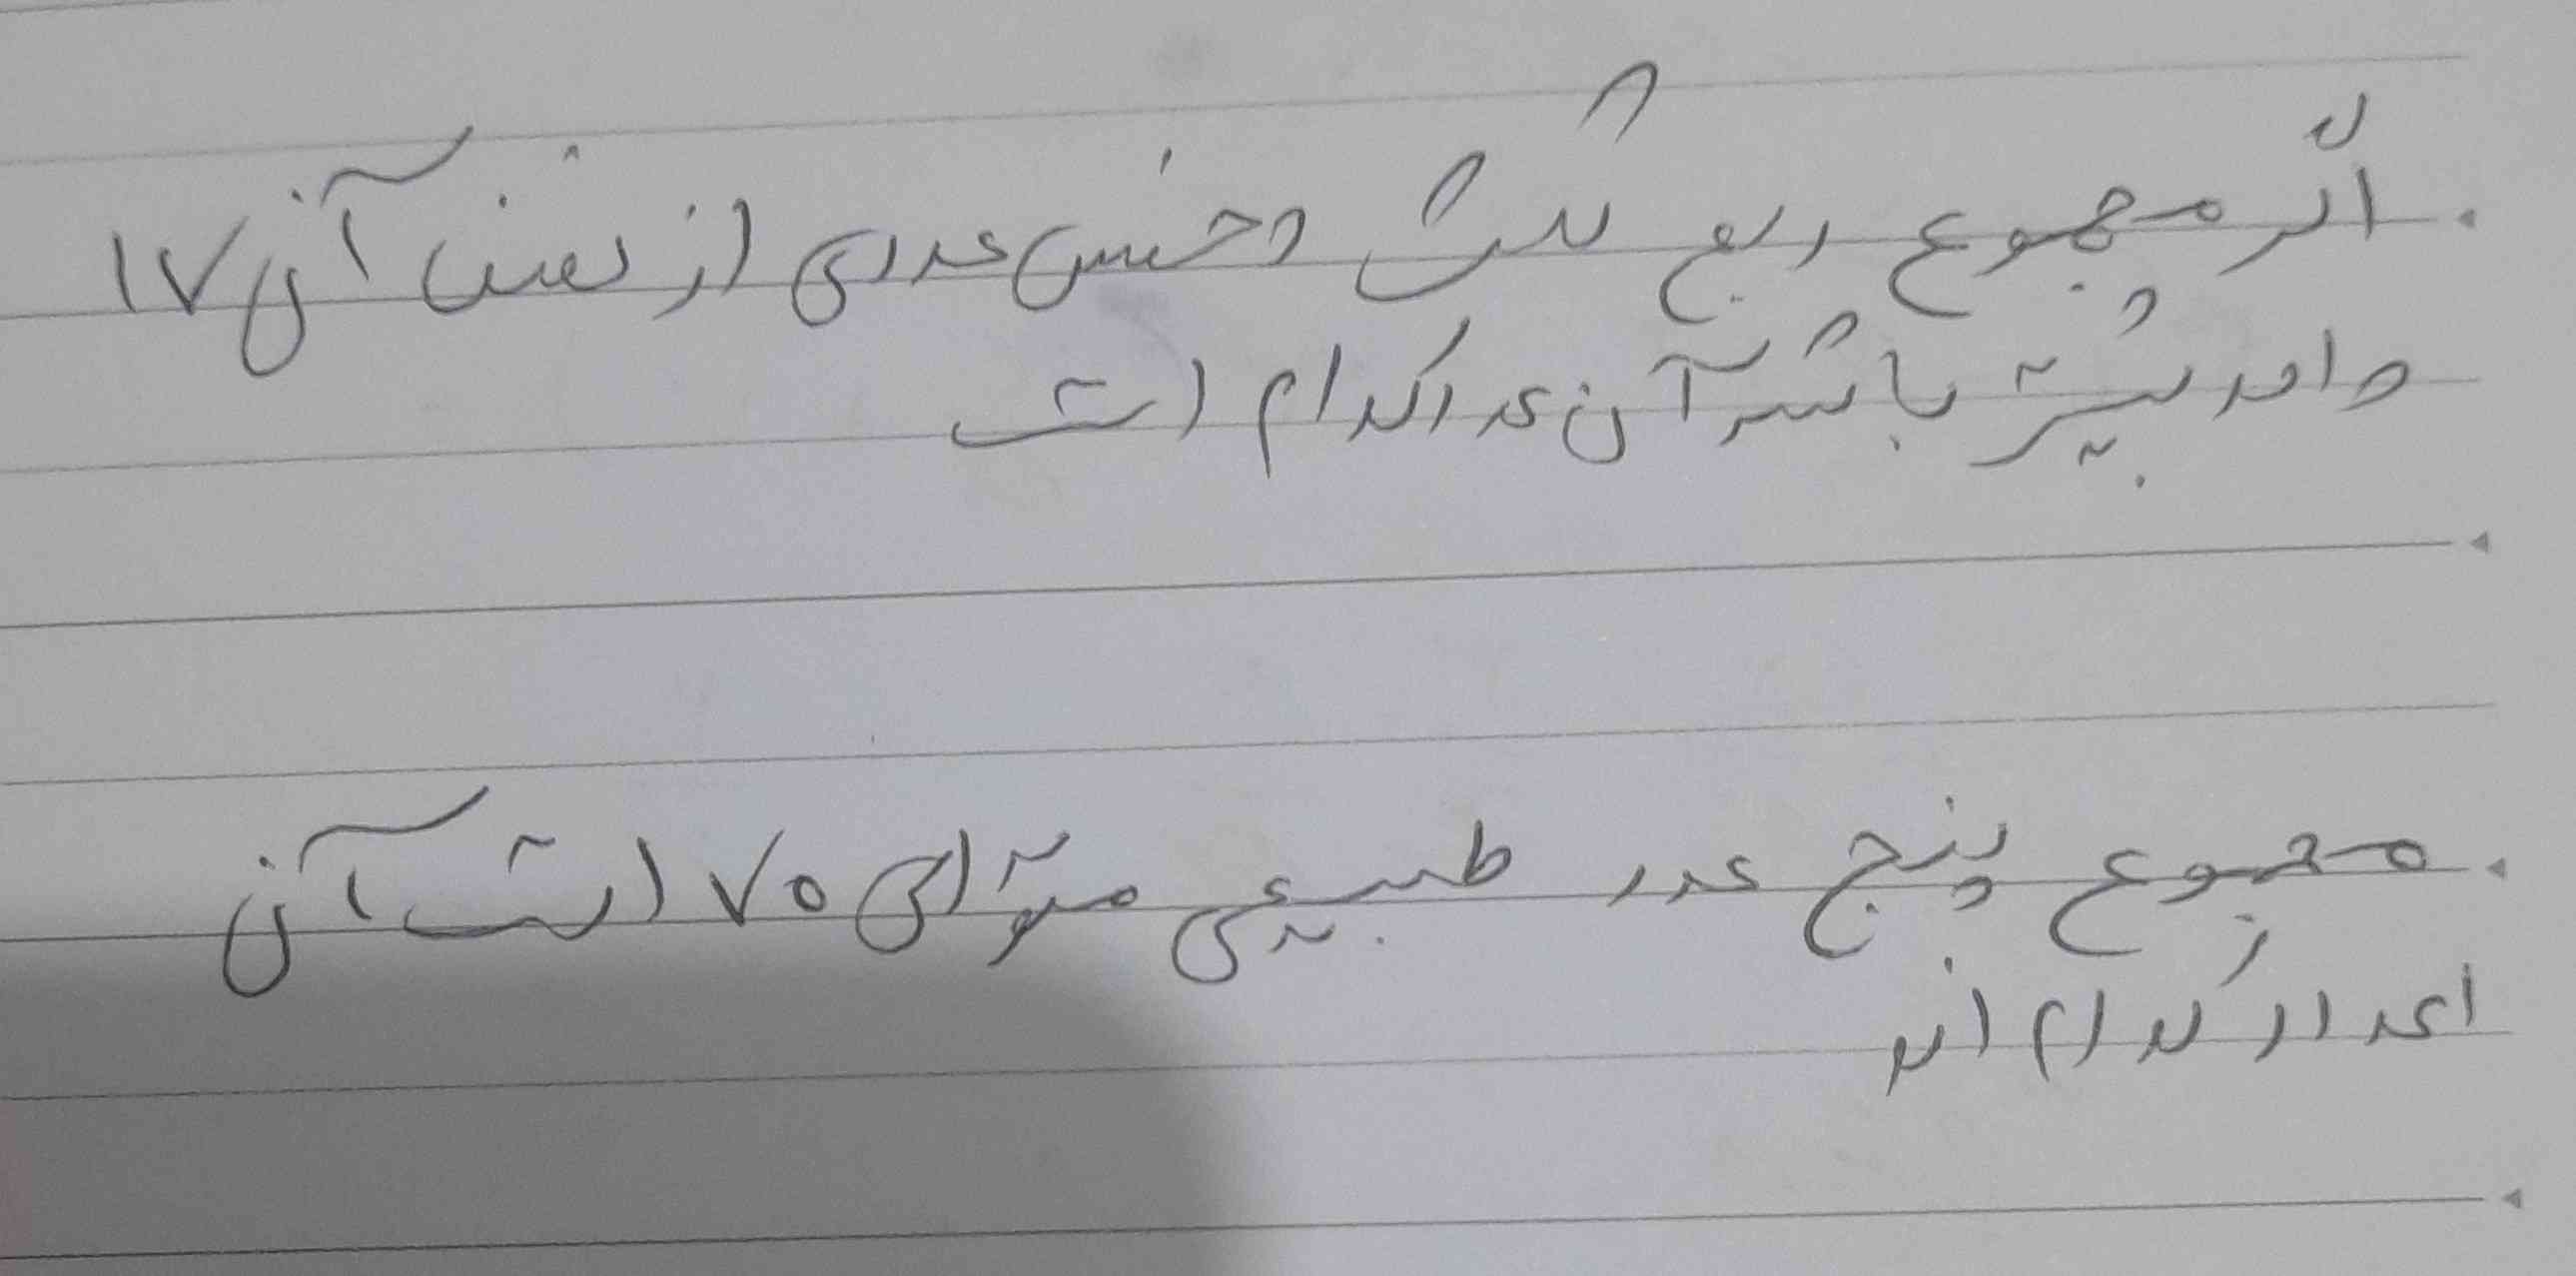 اگر مجموع ربع ثلث و خمس عددی از نصف آن ۱۷
واحد بیشتر باشد آن عدد کدام است
مجموع پنج عدد طبیعی متوالی ۷۰ است آن
اعداد کدام اند